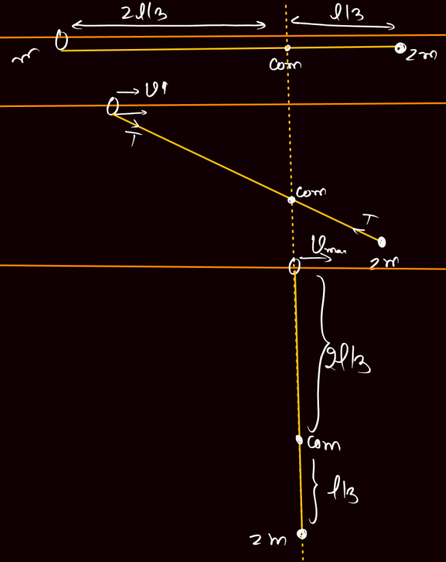 2l/3 l/3
m com 2m
v'
T
com
T
2m
Vmax
2l/3
com
l/3
2m